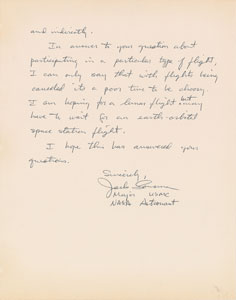 and indirectly.
In answer to your question about
participating in a particular type of flight,
I can only say that with flights being
canceled it's a poor time to be choosy.
I am hoping for a lunar flight but may
have to wait for an earth-orbital
space station flight.
I hope this has answered your
questions.
Sincerely,
Jack
Major USMC
NASA Astronaut